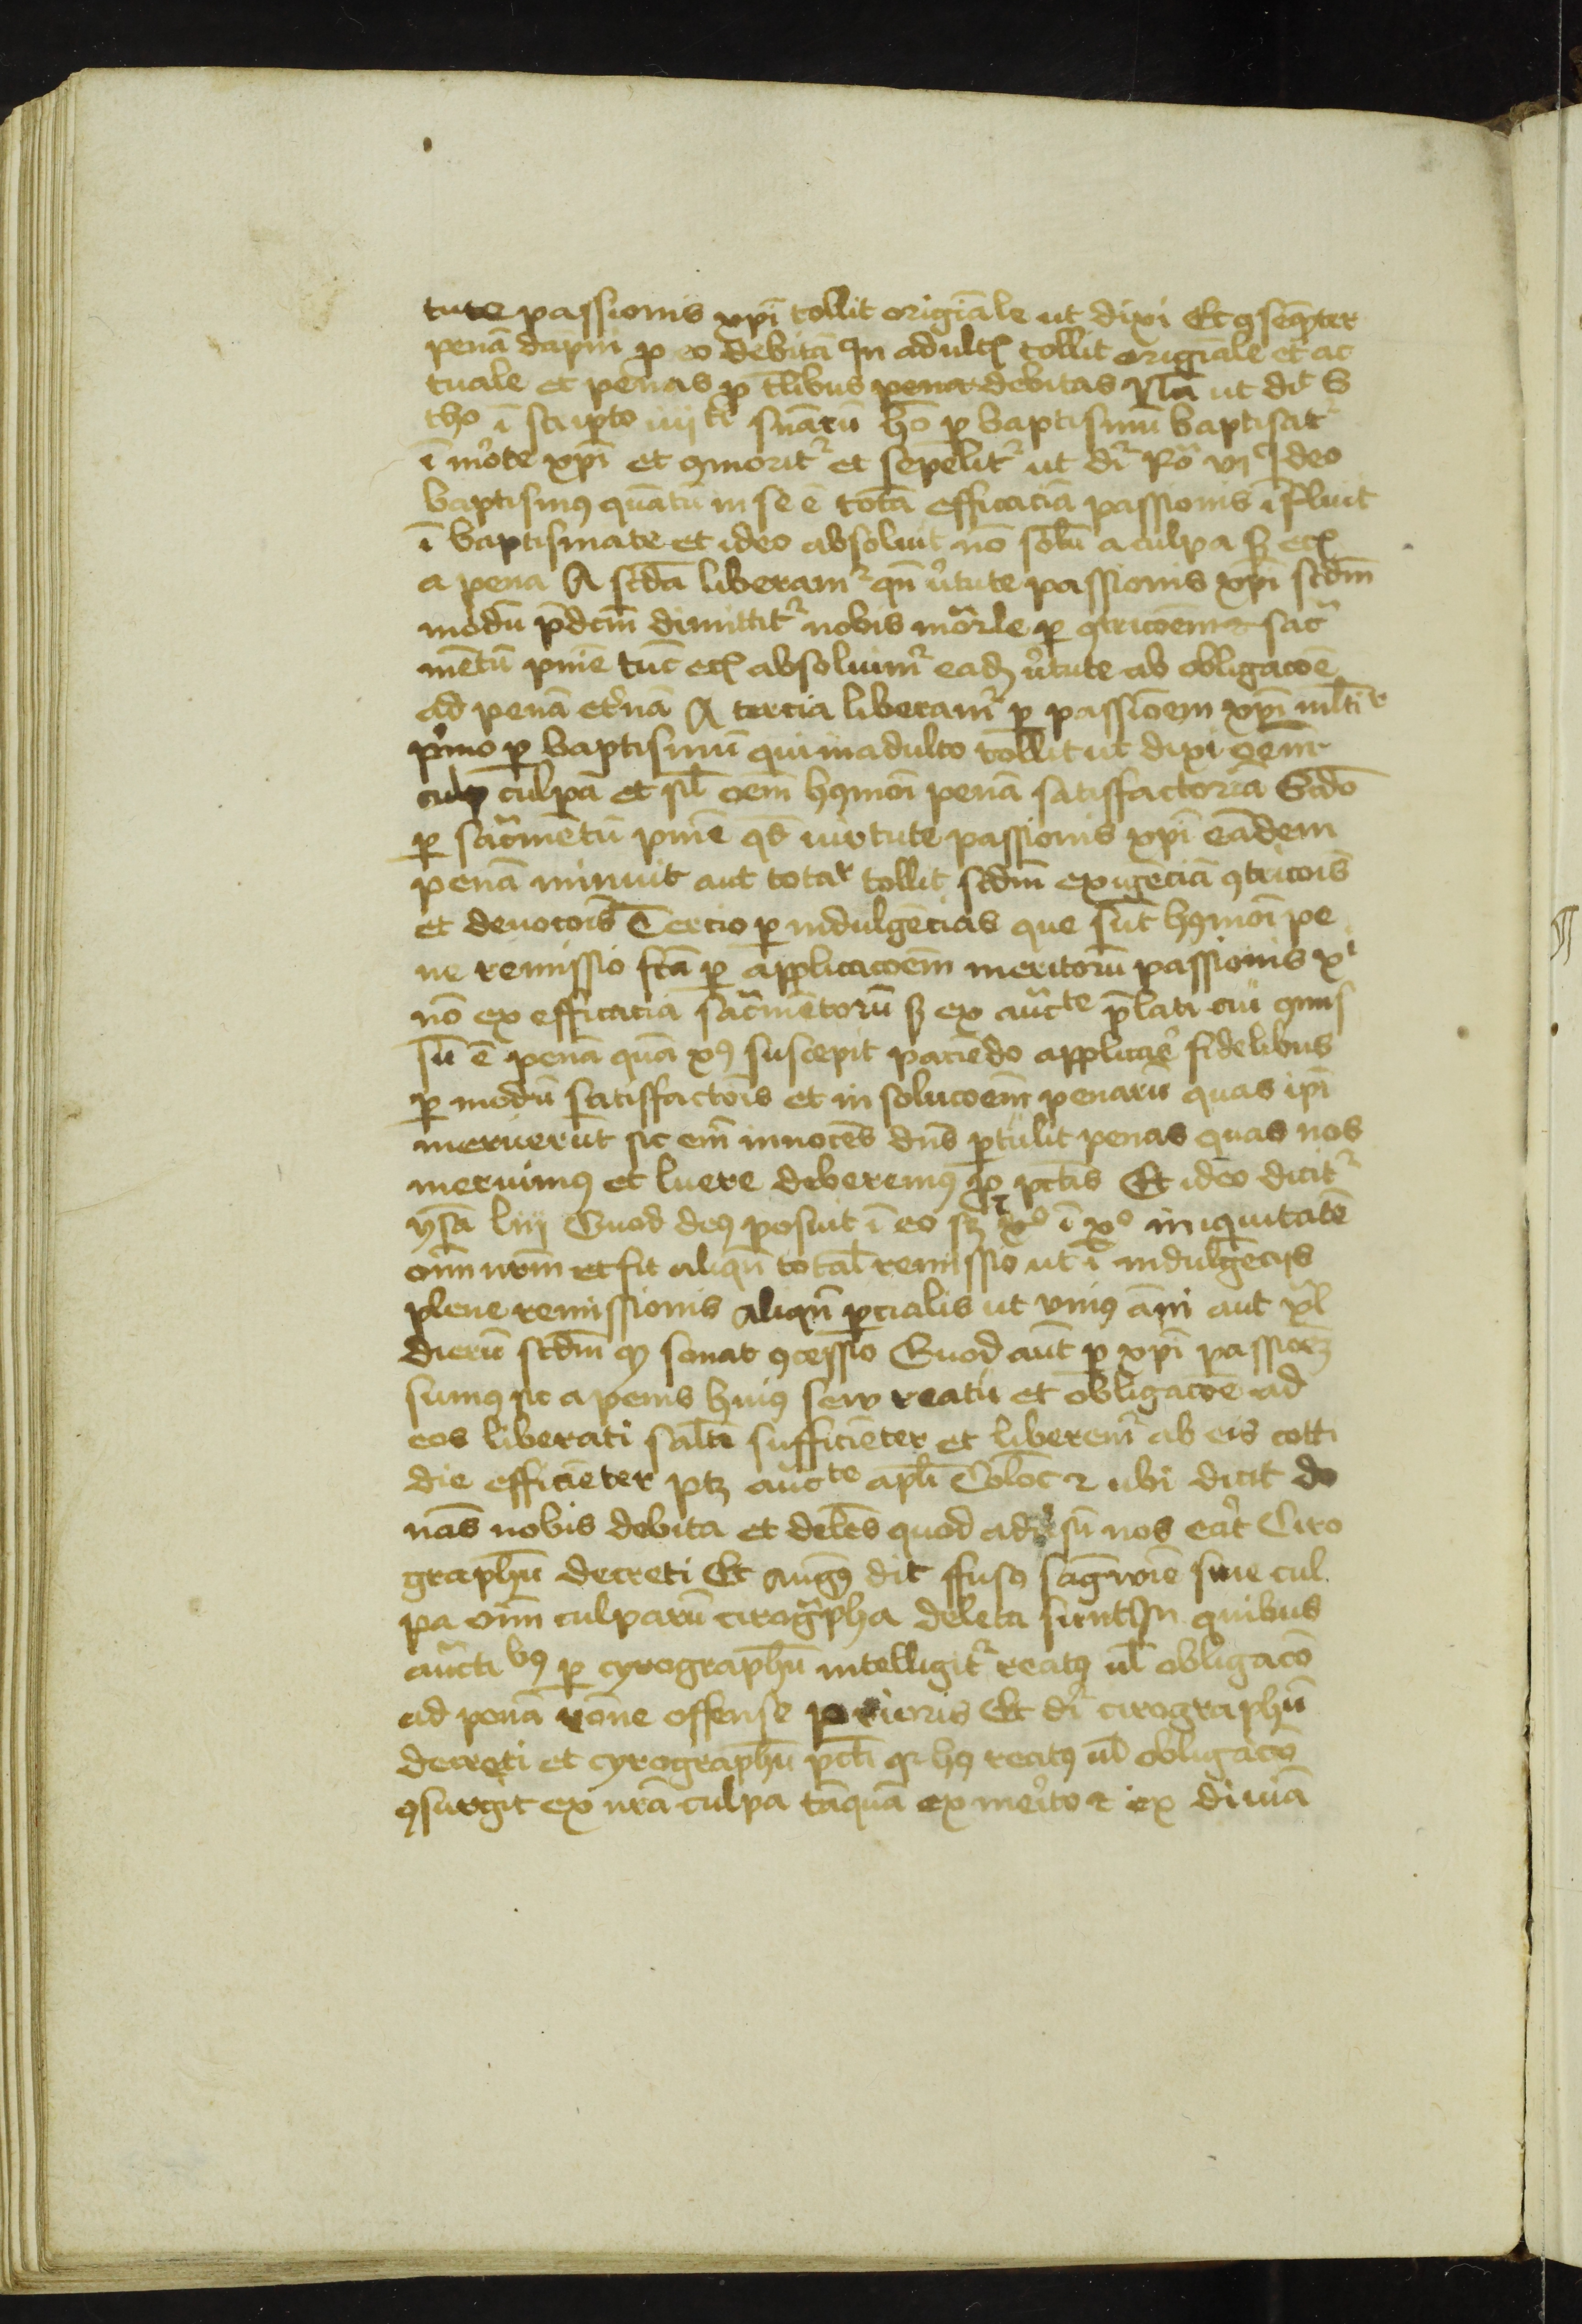 tute passionis xpī tollit origīale ut dixi Et ɔseq̄nter
penā dāpni p eo debitā In adultꝭ tollit origīale et ac
tuale et penas p tl̄ibus pena debitas Nā ut dīt S
tho ī scripto iiij ti sn̄arū hō p baptismū baptisatᷣ
ī mo᷑te xpī et ɔmoritᷣ et sepelitᷣ ut dr̄ Ro vj Ideo
baptismꝰ quātū in se ē totā efficaciā passionis īfluit
ī baptismate et ideo absoluit nō solū a culpa sꝫ etꝭ
a pena A scd̄a liberamᷣ qn̄ v᷑tute passionis xpī scdm̄
modū p̄dcm̄ dimittitᷣ nobis mo᷑rle p ɔtricoēm sac᷑
mētū pnīe tūc etꝭ absoluimᷣ eadꝫ v᷑tute ab obligacōe
ad penā et᷑nā A tercia liberamᷣ p passionem xpī ml̄tr
p᷑mo p baptismū qui in adulto tollit ut dixi oēm
culp culpā et sil̄ oēm hꝰmōi penā satisfactoriā Scd̄o
p sac᷑mētū pnīe qd̄ virtute passionis xpī eandem
penā minuit aut totar tollit scdm̄ exigenciā ɔtricōis
et deuocōis Tercio p indulgēcias que sūt hꝰmōi pe
ne remissio fcā p applicacōem meritorū passionis xi
nō ex efficacia sac᷑mētorū sꝫ ex auc᷑te p̄lati cui ɔmis
sū ē penā quā xꝰ suscepit paciēdo applicar᷑ fidelibus
p modū satisfactōis et in solucōem penarū quas ipī
meruerūt sic em̄ innocēs dn̄s p̄tulit penas quas nos
meruimꝰ et luere deberemꝰ p pct̄is Et ideo dicitᷣ
ysa liij Quod deꝰ posuit ī eo sꝫ xo ī xo iniquitatē
oīm nr̄m et fit aliqn̄ total̄ remissio ut ī indulgēcijs
plene remissionis aliqn̄ p̄cialis ut vniꝰ ānī aut xl
dierū scdm̄ qꝫ sonat ɔcessio Quod aūt p xpī passioꝫ
sumꝰ sic a penis huiꝰ seu reatu et obligacōe ad
eos liberati saltī sufficiēter et liberemᷣ ab eis cotti
die efficiēter ptꝫ auc᷑te apl̄i Coloc 2 ubi dicit do
nās nobis debita et delēs quod adu᷑sū nos erāt Ciro
graphū decreti Et augꝰ dīt ffuso sāgwīe sine cul
pa oīm culparū cirog᷑pha deleta sunt In quibus
auc᷑tibꝰ p cyrographū intelligitᷣ reatꝰ ul̄ obligacō
ad penā rōne offense prioris Et dr̄ cirographū
decreti et cyrographū pct̄i qꝛ hꝰ reatꝰ ul̄ obligacō
ɔsurgit ex nr̄a culpa tāquā ex merito et ex diuīa